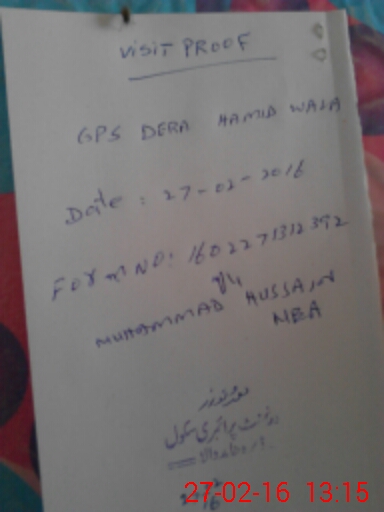 VISIT PROOF
GPS DERA HAMID WALA
Date : 27-02-2016
Form NO: 1602271312392
MUHAMMAD HUSSAIN
MEA
گورنمنٹ پرائمری سکول
27-02-16 13:15